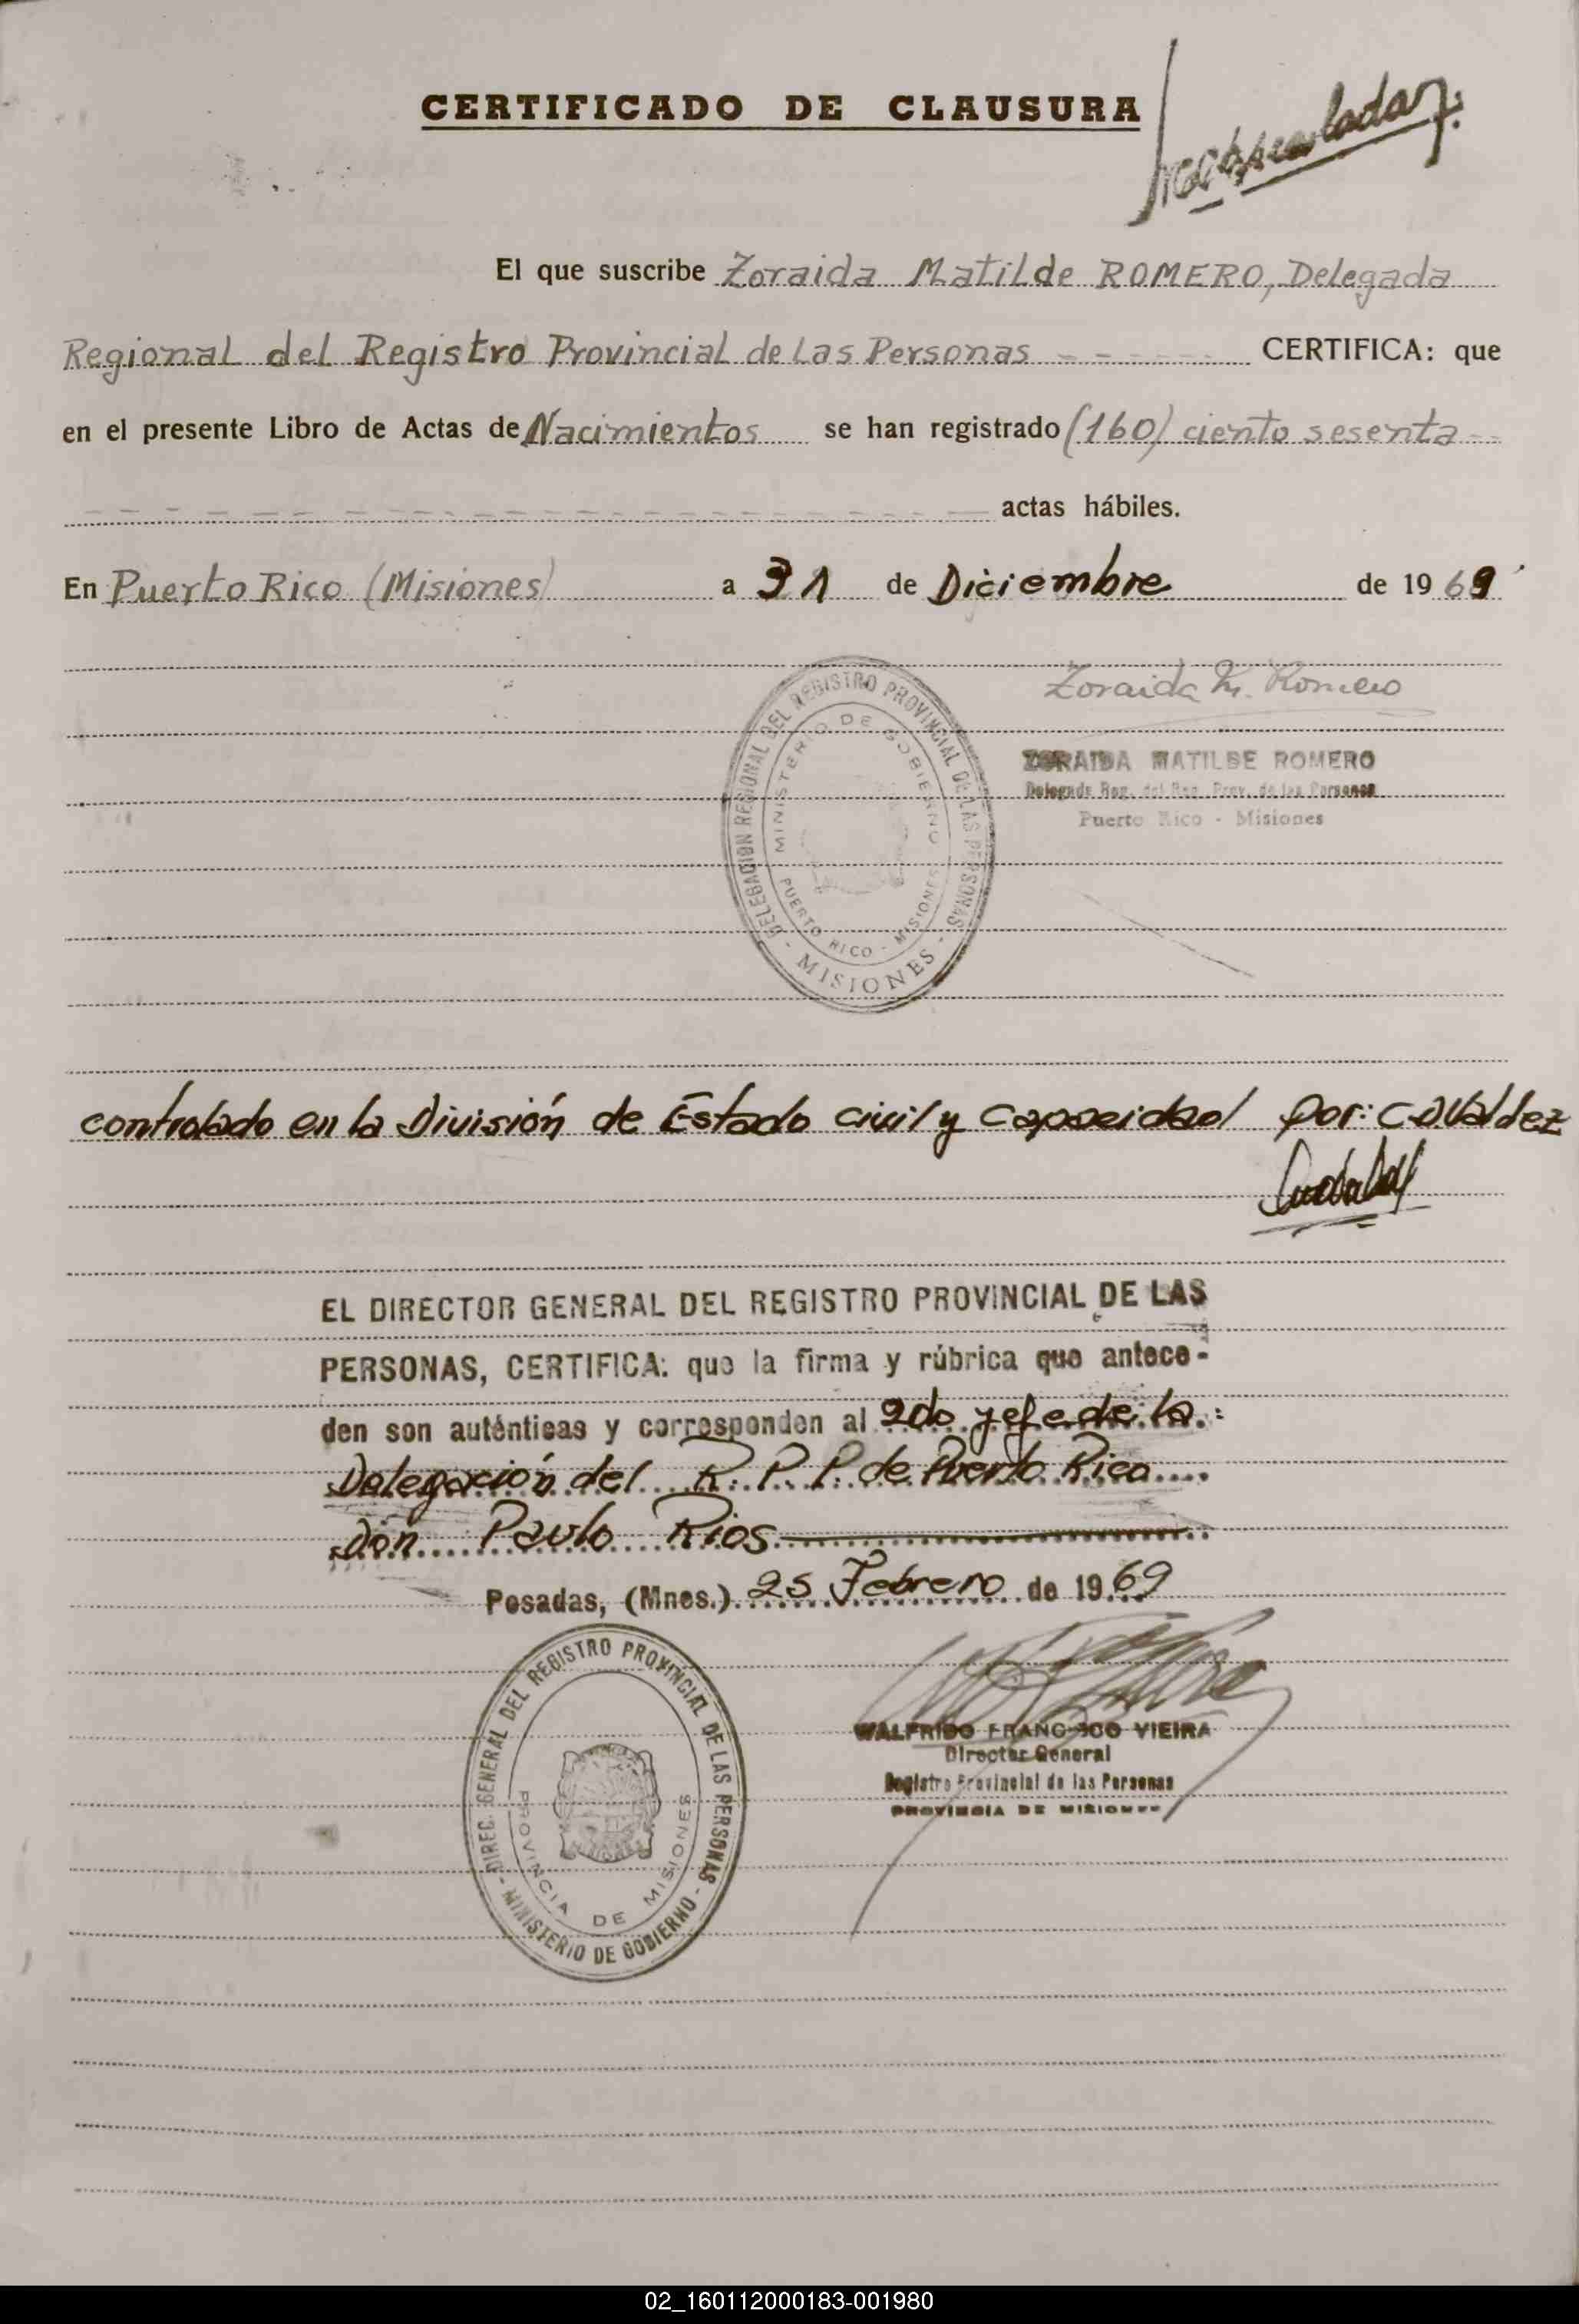 CERTIFICADO DE CLAUSURA
El que suscribe Zoraida Matilde ROMERO, Delegada
Regional del Registro Provincial de las Personas - - - - - - CERTIFICA: que
en el presente Libro de Actas de Nacimientos se han registrado (160) ciento sesenta - -
actas hábiles.
En Puerto Rico (Misiones) a 31 de Diciembre de 1969
Zoraida M. Romero
ZORAIDA MATILDE ROMERO
Delegada Reg. del Reg. Prov. de las Personas
Puerto Rico - Misiones
DELEGACION REGIONAL DEL REGISTRO PROVINCIAL DE LAS PERSONAS
- MISIONES -
MINISTERIO DE GOBIERNO
PUERTO RICO - MISIONES
controlado en la División de Estado civil y capacidad por: C.D. Valdez
EL DIRECTOR GENERAL DEL REGISTRO PROVINCIAL DE LAS
PERSONAS, CERTIFICA: que la firma y rúbrica que antece-
den son auténticas y corresponden al 2do jefe de la
Delegación del R. P. P. de Puerto Rico
Don Paulo Rios
Posadas, (Mnes.) 25 Febrero de 1969
DIREC. GENERAL DEL REGISTRO PROVINCIAL DE LAS PERSONAS
- MINISTERIO DE GOBIERNO -
PROVINCIA DE MISIONES
WALFRIDO FRANCISCO VIEIRA
Director General
Registro Provincial de las Personas
PROVINCIA DE MISIONES
02_160112000183-001980